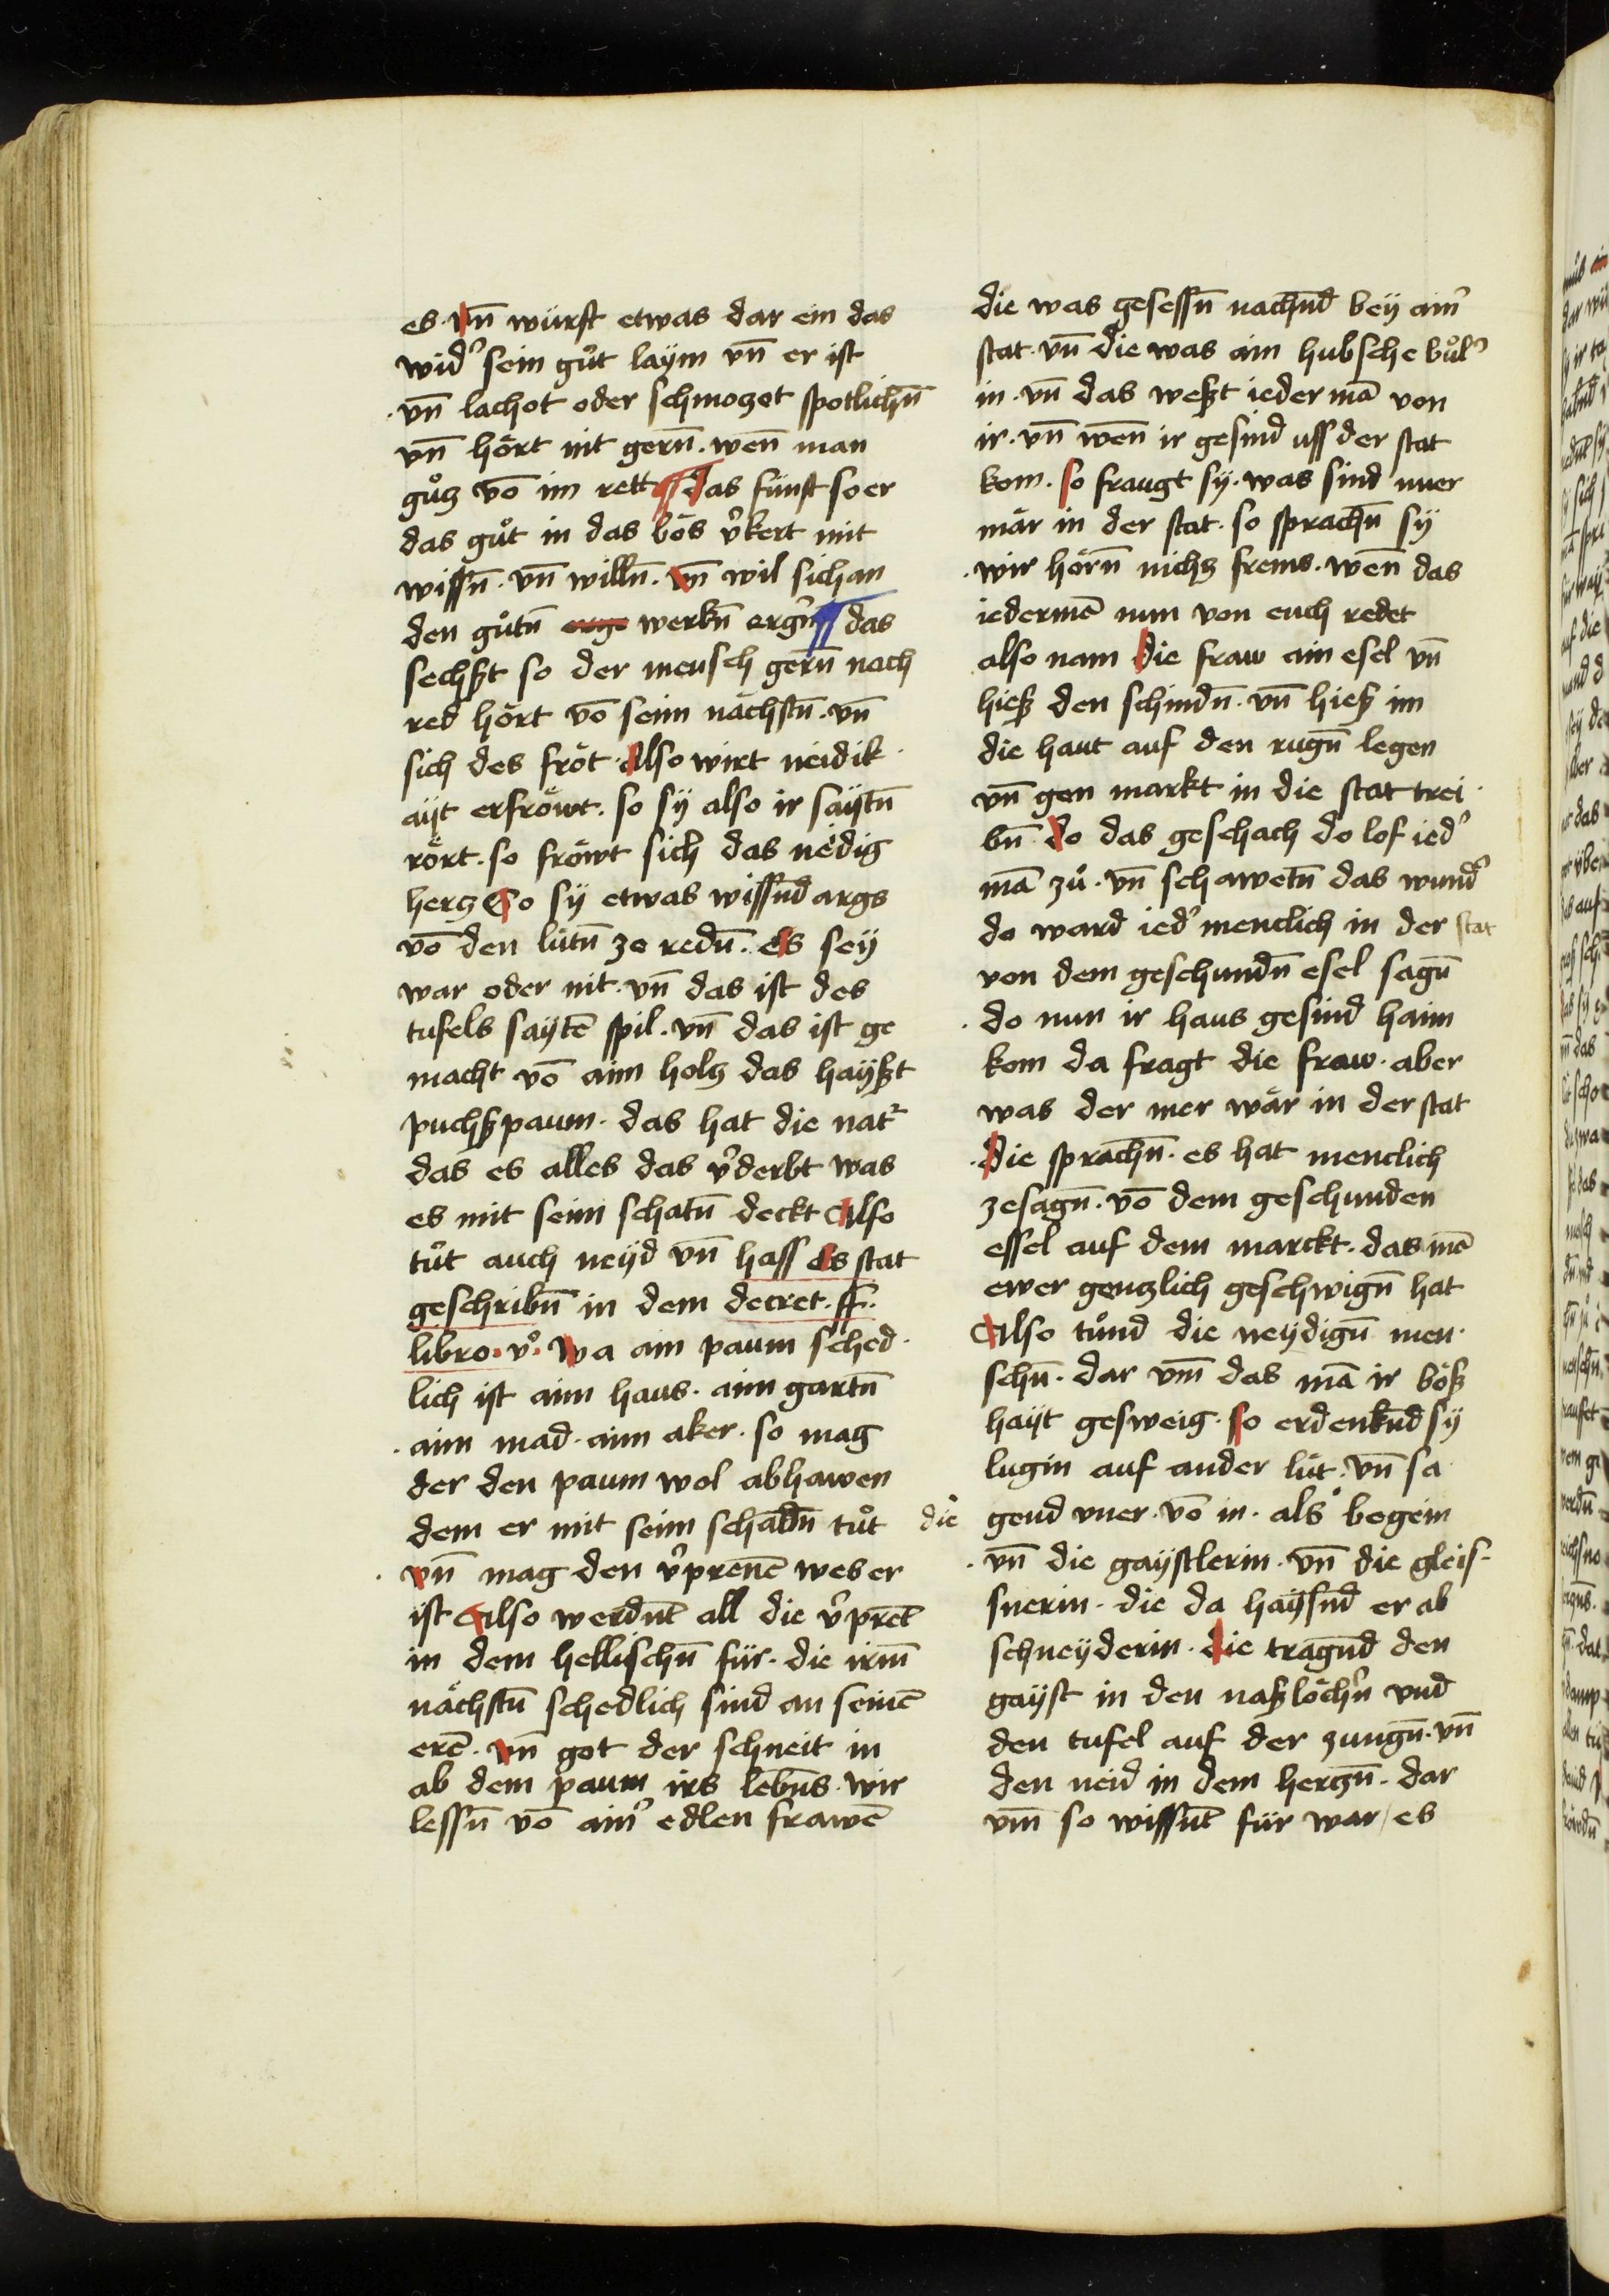 es · vn̄ würft etwas dar ein das
wid᷑ sein gůt laÿm vn̄ er ist
· vn̄ lachot oder schmozot spotlichn̄
vn̄ hört nit gern̄ · wen̄ man
gůz vō im rett ¶ das fünft so er
das gůt in das bös v᷑kert mit
wissn̄ · vn̄ willn̄ · vn̄ wil sich an
den gůtn̄ erge werkn̄ erg᷑n ¶ das
sechßt so der mensch gern̄ nach
red hört vō seim nächstn̄ · vn̄
sich des fröt · Also wirt neidik ·
aÿt erfröwt · so sÿ also ir saÿtn̄
rört · so fröwt sich das nedig
herz So sÿ etwas wissn̄d args
vō den lütn̄ ze redn̄ · es seÿ
war oder nit · vn̄ das ist des
tufels saÿtē spil · vn̄ das ist ge
macht vō aim holz das haÿßt
puchßpaum · das hat die nat᷑
das es alles das v᷑derbt was
es mit seim schatn̄ deckt Also
tůt auch neÿd vn̄ hass es stat
geschribn̄ in dem decret · ff ·
libro · vͦ · wa ain paum sched ·
lich ist aim haus · aim gartn̄
· aim mad · aim aker · so mag
der den paum wol abhawen
dem er mit seim schadn̄ tůt
· vn̄ mag den v᷑prenē wes er
ist Also werdn̄t all die v᷑prēt
in dem hellischn̄ für · die irm̄
nächstn̄ schedlich sind an seinē
erē · vn̄ got der schneit in
ab dem paum irs lebn̄s · wir
lessn̄ vō aim᷑ edlen frawē
die was gesessn̄ nachn̄d beÿ aim᷑
stat · vn̄ die was ain hubsche bůl᷑
in · vn̄ das weßt ieder mā von
ir · vn̄ wen̄ ir gesind uss der stat
kom · so fraugt sÿ · was sind nuer
mär in der stat · so sprachn̄ sÿ
· wir hörn̄ nichz frems · wen̄ das
iedermē nun von euch redet
also nam die fraw ain esel vn̄
hieß den schindn̄ · vn̄ hieß im
die haut auf den rugn̄ legen
vn̄ gen markt in die stat trei ·
bn̄ · do das geschach do lof ied᷑
mā zů · vn̄ schawetn̄ das wund᷑
do ward ied᷑ menclich in der stat
von dem geschundn̄ esel sagn̄
· do nun ir haus gesind haim
kom da fragt die fraw · aber
was der mer wär in der stat
· die sprachn̄ · es hat menclich
zesagn̄ · vō dem geschunden
essel auf dem marckt · das mē
ewer genzlich geschwign̄ hat
Also tůnd die neÿdign̄ men ·
schn̄ · dar vm̄ das mā ir böß
haÿt gesweig · so erdenkn̄d sÿ
lugin auf ander lüt · vn̄ sa
gend vner · vō in · als die begein
· vn̄ die gaÿstlerin · vn̄ die gleis -
snerin · die da haÿsn̄d er ab
schneÿderin · die tragn̄d den
gaÿst in den naßlöch᷑n vnd
den tufel auf der zungn̄ · vn̄
den neid in dem herzn̄ · dar
vm̄ so wissn̄t für war / es